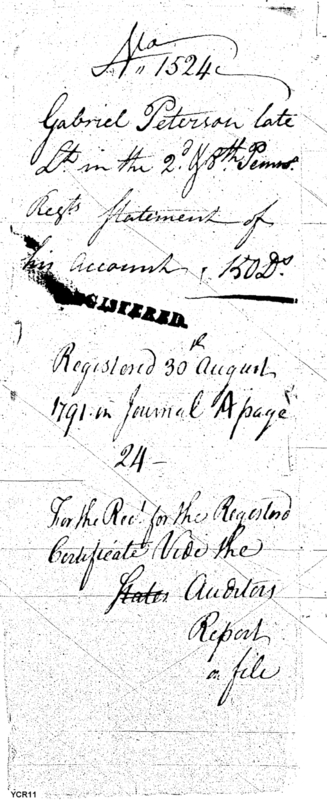 No. 1524
Gabriel Peterson late
Lt. in the 2d. & 8th. Penns.
Regts Statement of
his Account, 150 Ds.
REGISTERED
Registered 30th August
1791 in Journal A page
24 —
For the Rect. for the Registered
Certificate Vide the
States Auditors
Report
on file
YCR11